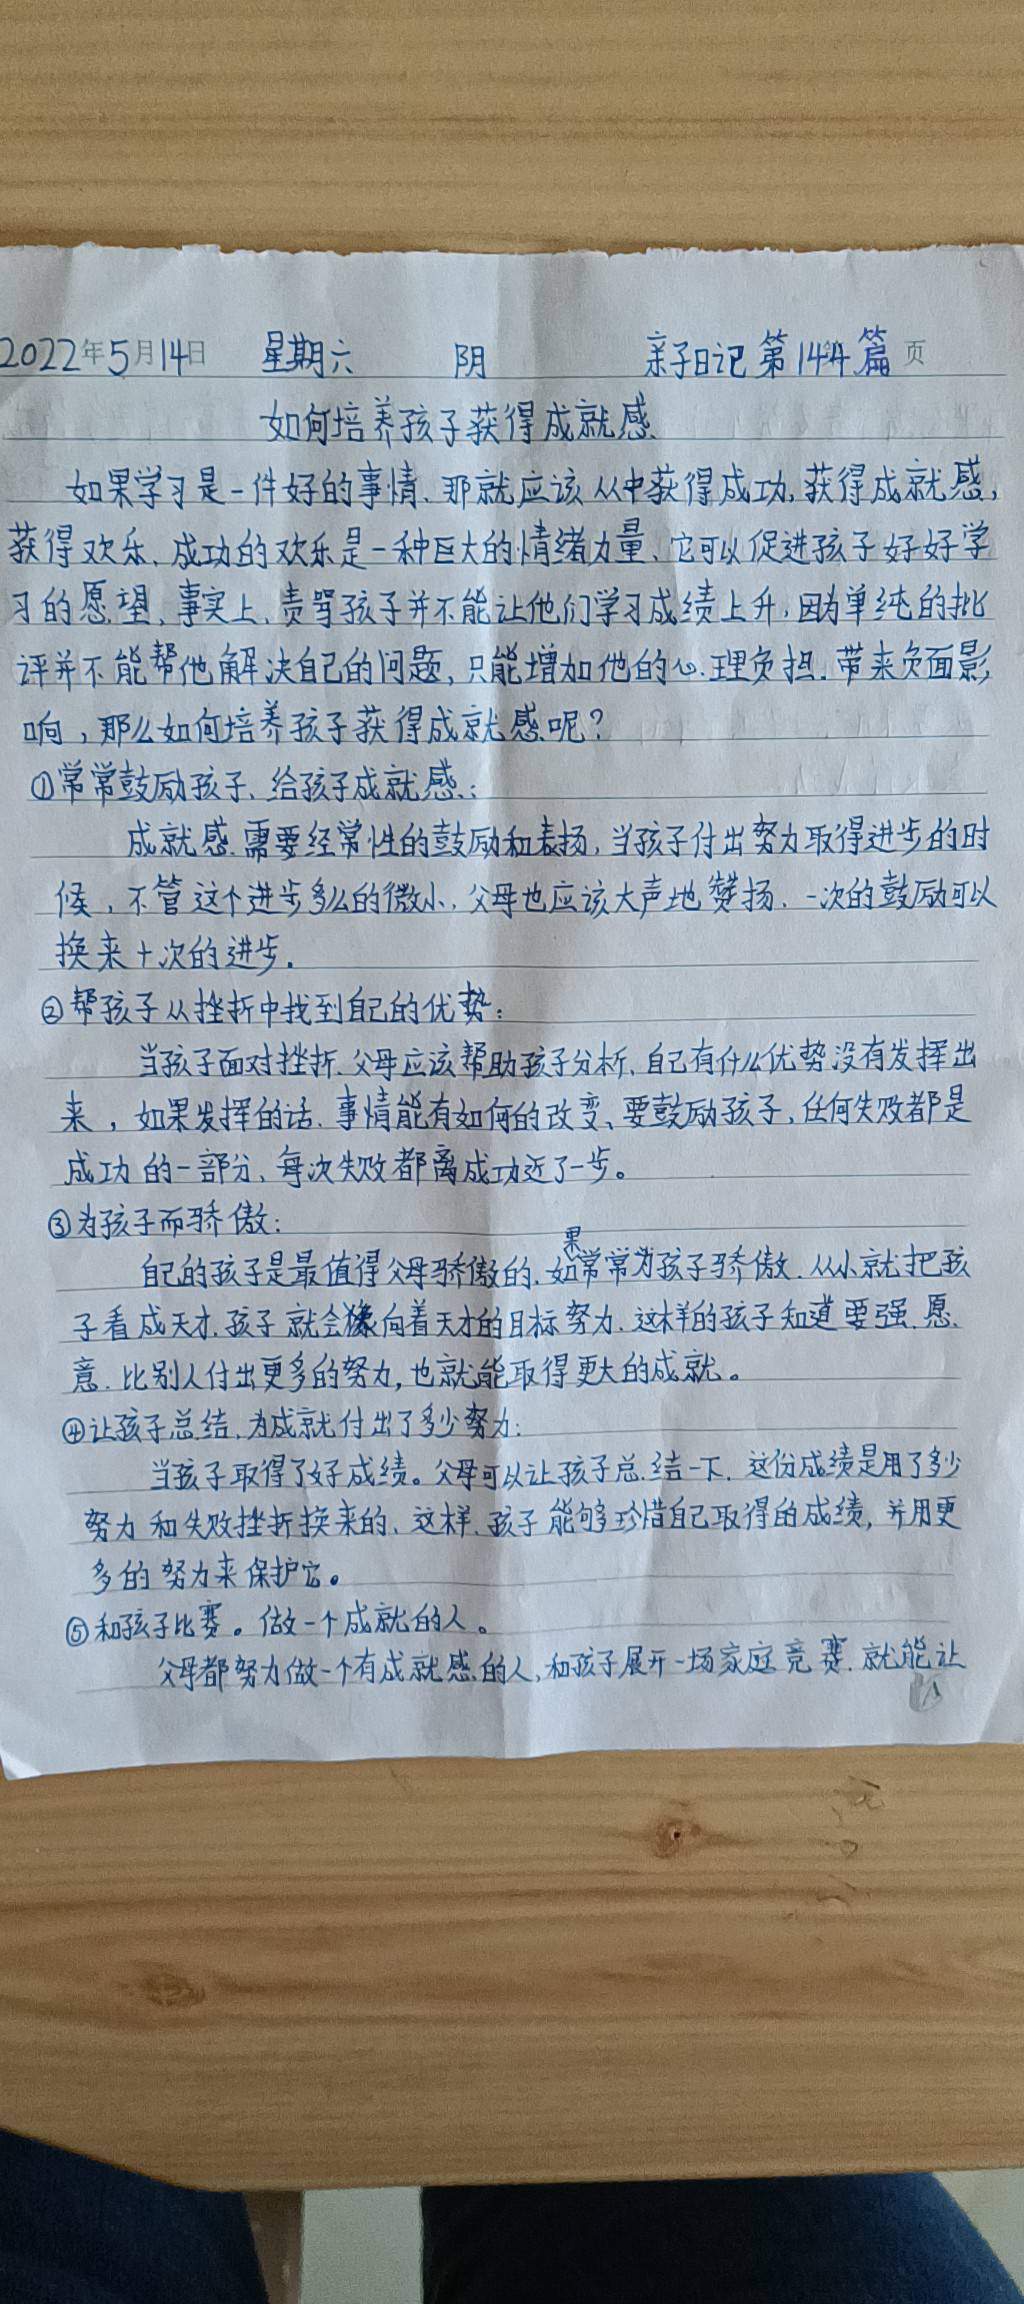 2022年5月14日 星期六 阴 亲子日记第144篇 页
如何培养孩子获得成就感
如果学习是一件好的事情、那就应该从中获得成功,获得成就感,
获得欢乐、成功的欢乐是一种巨大的情绪力量、它可以促进孩子好好学
习的愿望、事实上、责骂孩子并不能让他们学习成绩上升,因为单纯的批
评并不能帮他解决自己的问题,只能增加他的心理负担、带来负面影
响,那么如何培养孩子获得成就感呢?
①常常鼓励孩子、给孩子成就感:
成就感需要经常性的鼓励和表扬,当孩子付出努力取得进步的时
候,不管这个进步多么的微小,父母也应该大声地赞扬、一次的鼓励可以
换来十次的进步.
②帮孩子从挫折中找到自己的优势:
当孩子面对挫折、父母应该帮助孩子分析、自己有什么优势没有发挥出
来,如果发挥的话、事情能有如何的改变、要鼓励孩子、任何失败都是
成功的一部分、每次失败都离成功近了一步。
③为孩子而骄傲:
自己的孩子是最值得父母骄傲的、如果常常为孩子骄傲、从小就把孩
子看成天才、孩子就会像向着天才的目标努力、这样的孩子知道要强、愿
意、比别人付出更多的努力,也就能取得更大的成就。
④让孩子总结、为成就付出了多少努力:
当孩子取得了好成绩。父母可以让孩子总结一下、这份成绩是用了多少
努力和失败挫折换来的、这样、孩子能够珍惜自己取得的成绩,并用更
多的努力来保护它。
⑤和孩子比赛。做一个成就的人。
父母都努力做一个有成就感的人,和孩子展开一场家庭竞赛、就能让